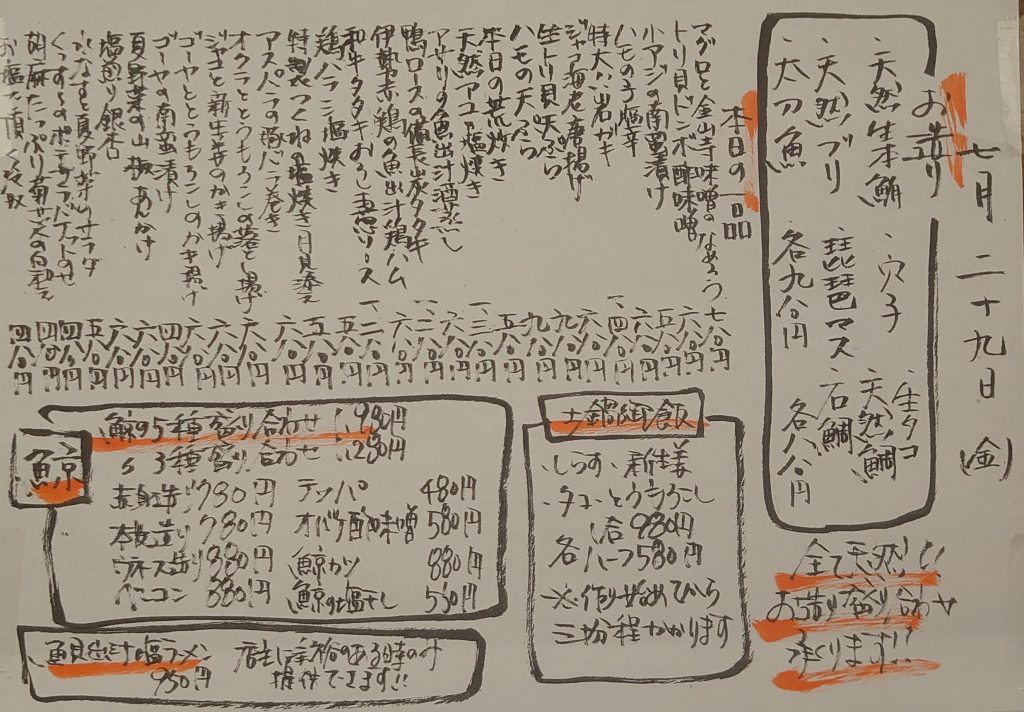 七月二十九日(金)
お造り
・天然生本鮪
・天然ブリ
・太刀魚
・穴子
・琵琶マス
各九八〇円
・生タコ
・天然鯛
・石鯛
各八八〇円
全て天然!!
お造り盛り合わせ
承ります!!
本日の一品
マグロと金山寺味噌のなめろう 七八〇円
トリ貝ドンボ酢味噌 六八〇円
小アジの南蛮漬け 五八〇円
ハモの子塩辛 六八〇円
特大岩ガキ 一、四八〇円
ジャコ海老唐揚げ 六八〇円
生トリ貝天ぷら 九八〇円
ハモの天ぷら 九八〇円
本日の荒炊き 五八〇円
天然アユ塩焼き 一、三八〇円
アサリの魚出汁酒蒸し 六八〇円
鴨ロースの備長炭タタキ 一、二八〇円
伊勢赤鶏の魚出汁鶏ハム 六八〇円
和牛タタキおろし
鶏ハラミ塩焼き 五八〇円
特製つくね塩焼き月見添え
アスパラの豚バラ巻き 六八〇円
オクラととうもろこしの落とし揚げ
ジャコと新生姜のかき揚げ
ゴーヤととうもろこしのかき揚げ
ゴーヤの南蛮漬け 四八〇円
夏野菜の山椒あんかけ 六八〇円
塩煎り銀杏
水なすと夏野菜のサラダ
くんせいのポテサラバゲットのせ
胡麻たっぷり
お塩で頂く冷奴
鯨
鯨の5種盛り合わせ 1,980円
〃3種盛り合わせ 1,280円
赤身造り 780円
本皮造り 780円
ウネス造り 880円
ベーコン 880円
テッパ 480円
オバケ酢味噌 580円
鯨カツ 880円
鯨の塩干し 550円
土鍋御飯
・しらす、新生姜
・タコ、とうもろこし
各980円
各ハーフ580円
※作り始めてから
三十分程かかります
鯛出汁塩ラーメン
950円
店主に余裕のある時のみ
提供できます!!